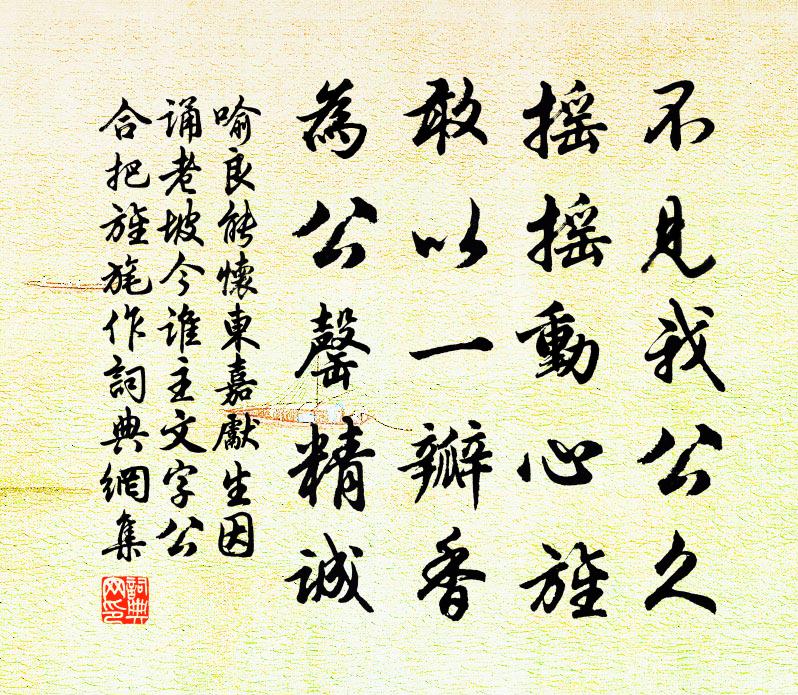 不見我公久
搖搖動心旌
敢以一瓣香
為公罄精誠
喻良能懷東嘉獻生因
誦老坡今誰主文字公
合把旌旄作詞典網集
詞典網印